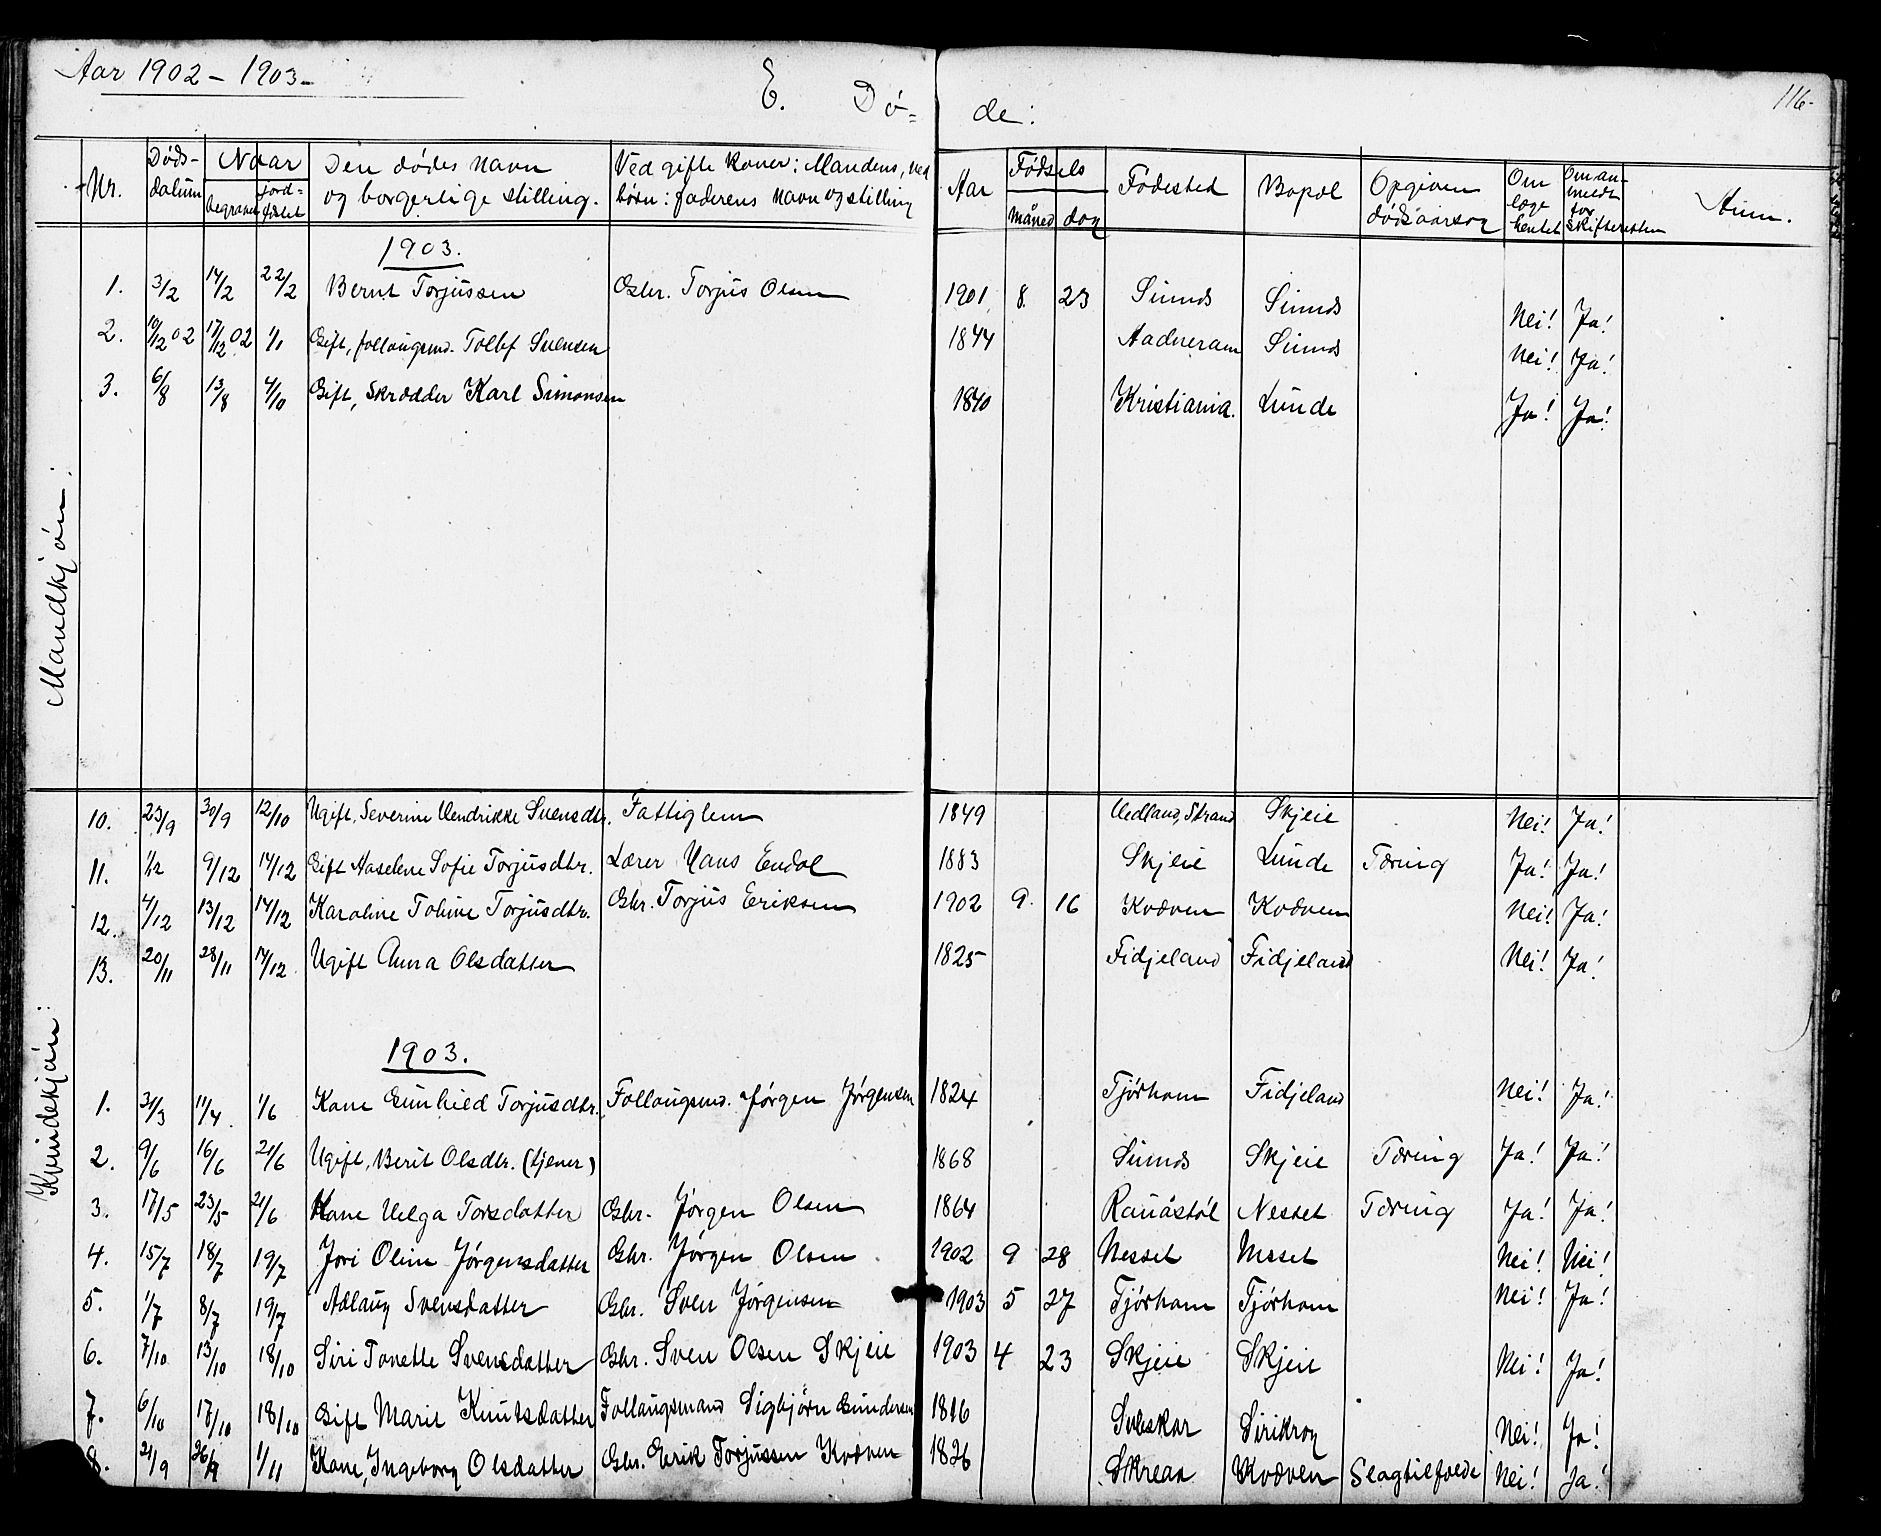 Aar 1902 - 1903 -
E. Dø= de: 116-
Nr. Døds- datum Naar begravet jord= fæstet Den dødes navn og borgerlige stilling. Ved gifte koner: Mandens, ved børn: faderens navn og stilling Aar Fødsels måned dag Fødested Bopæl Opgiven dødsaarsag Om læge hentet Om an- meldt for skifteretten Anm.
Mandkjøn:
1903.
1. 3/2 14/2 22/2 Bernt Torjussen Gbr. Torjus Olsen 1901 8. 23 Sinnes Sinnes Nei! Ja!
2. 10/12 02 17/12 02 1/1 Gift, follaugsmd. Tollef Svensen 1844 Aadneram Sinnes Nei! Ja!
3. 6/8 13/8 4/10 Gift, Skrædder Karl Simonsen 1840 Kristiania. Lunde Ja! Ja!
Kvindekjøn:
10. 23/9 30/9 12/10 Ugift, Severine Hendrikke Svensdtr. Fattiglem 1849 Hedland, Strand Skjeie Nei! Ja!
11. 1/12 9/12 14/12 Gift Aaselene Sofie Torjusdtr. Lærer Hans Endal 1883 Skjeie Lunde Tæring Ja! Ja!
12. 4/12 13/12 14/12 Karoline Toline Torjusdtr. Gbr. Torjus Eriksen 1902 9. 16 Kvæven Kvæven Nei! Ja!
13. 20/11 28/11 14/12. Ugift Anna Olsdatter 1825 Fidjeland Fidjeland Nei! Ja!
1903.
1. 31/3 11/4. 1/6 Kone Gunhild Torjusdtr. Follaugsmd. Jørgen Jørgensen 1824 Tjørhom Fidjeland Nei! Ja!
2. 9/6 16/6 21/6 Ugift, Berit Olsdtr. (tjener) 1868 Sinnes Skjeie Tæring Ja! Ja!
3. 17/5 23/5 21/6 Kone Helga Torsdatter Gbr. Jørgen Olsen 1864 Rauåstøl Nesset Tæring Ja! Ja!
4. 15/7 18/7 19/7 Jori Oline Jørgensdatter Gbr. Jørgen Olsen 1902 9 28 Nesset Nesset Nei! Nei!
5. 1/7 8/7 19/7 Adlaug Svensdatter Gbr. Sven Jørgensen 1903 5 27 Tjørhom Tjørhom Nei! Ja!
6. 7/10 13/10 18/10 Siri Tonette Svensdatter Gbr. Sven Olsen Skjeie 1903 4 23 Skjeie Skjeie Nei! Ja!
7. 6/10 17/10 18/10 Gift Marit Knutsdatter Follaugsmand Sigbjørn Gundersen 1816 Suleskar Sirikrog Nei! Ja!
8. 21/9 26/9 1/11 Kone, Ingeborg Olsdatter Gbr. Erik Torjussen Kvæven 1826 Skrean Kvæven Slagtilfælde Nei! Ja!